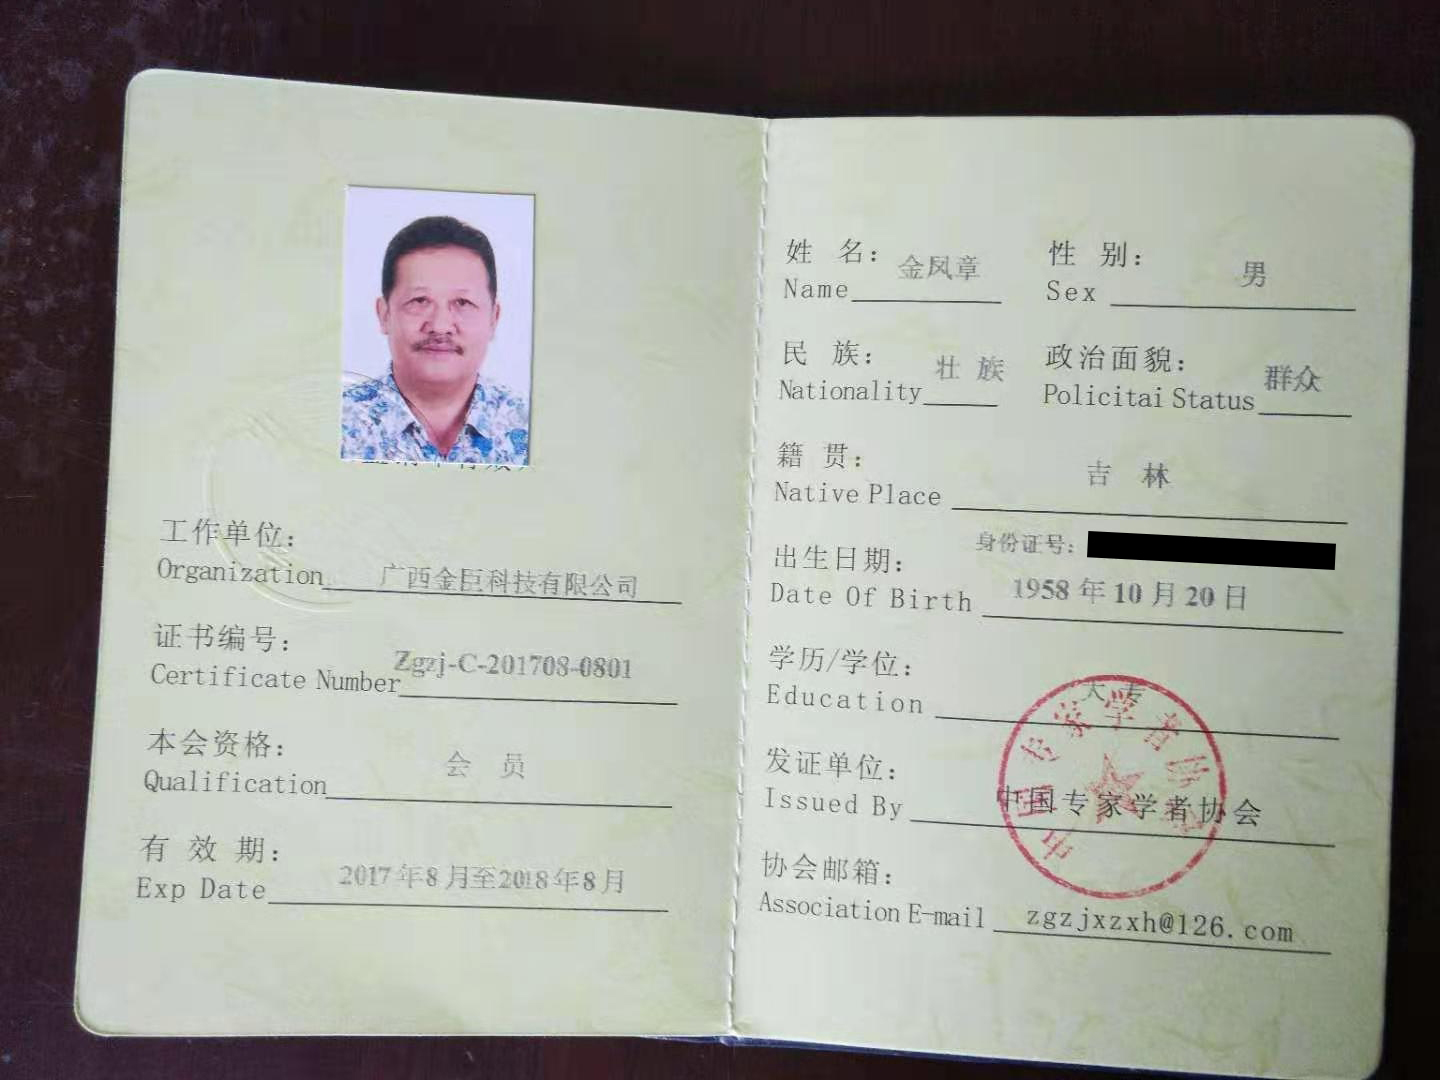 工作单位：
Organization 广西金臣科技有限公司
证书编号：
Certificate Number Zgzj-C-201708-0801
本会资格：
Qualification 会 员
有 效 期：
Exp Date 2017年8月至2018年8月
姓 名： 金凤章 性 别： 男
Name Sex
民 族： 壮 族 政治面貌： 群众
Nationality Policitai Status
籍 贯： 吉 林
Native Place
身份证号：
出生日期： 1958年10月20日
Date Of Birth
学历/学位： 大 专
Education
发证单位：
Issued By 中国专家学者协会
协会邮箱：
Association E-mail zgzjxzxh@126.com
中国专家学者协会